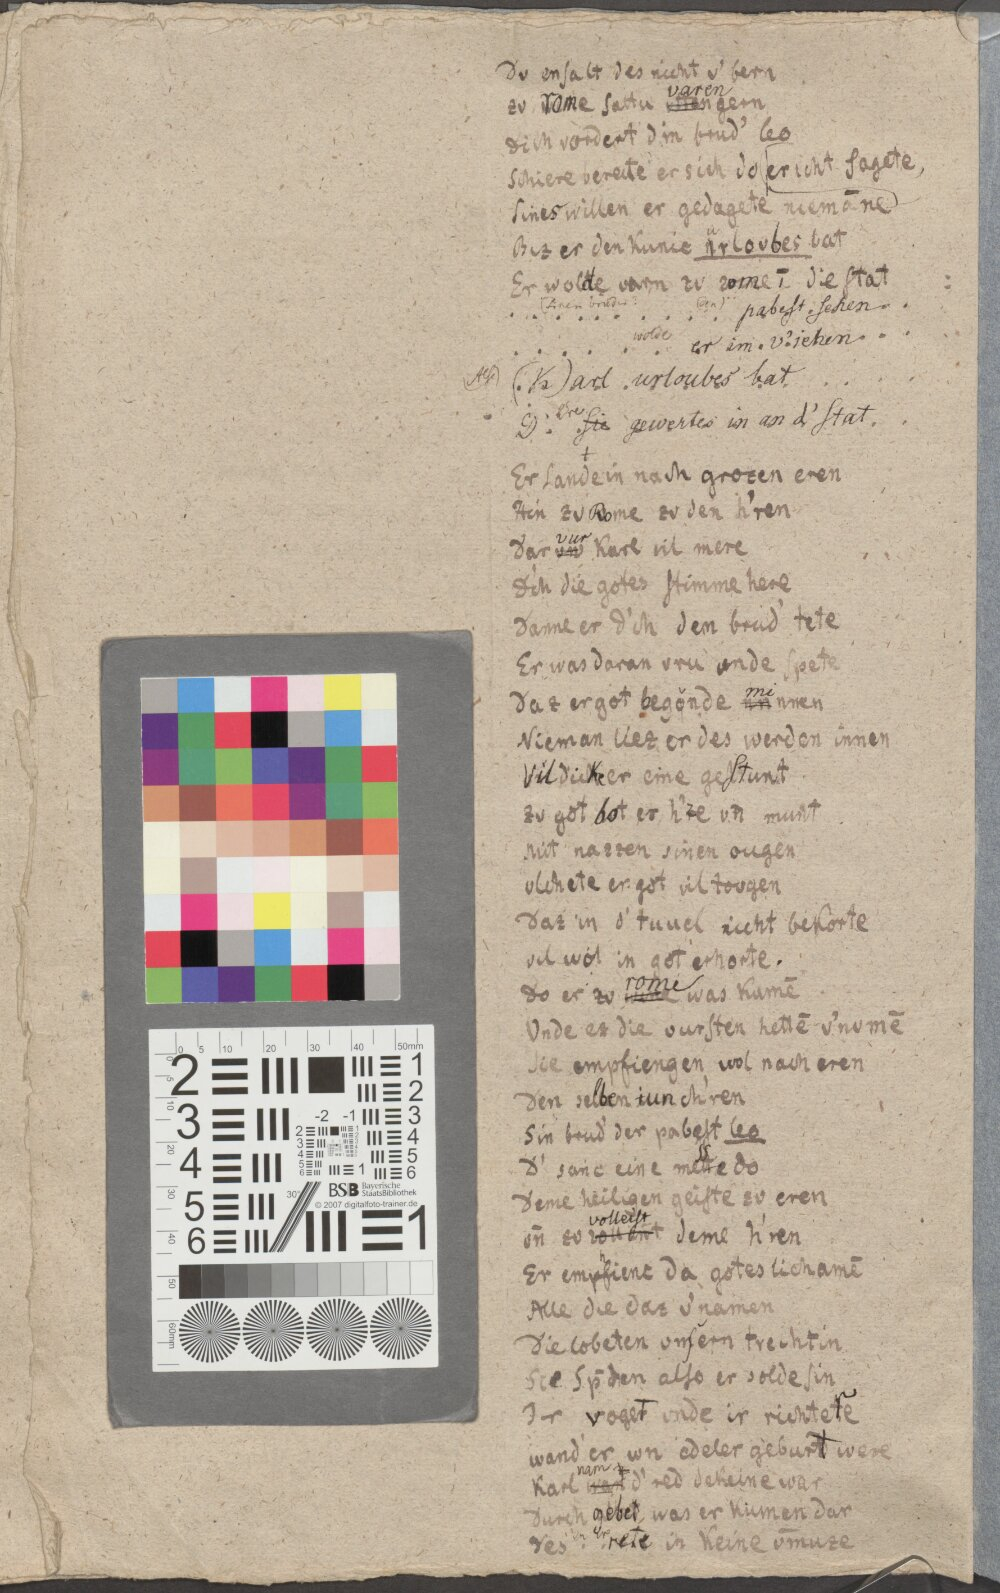 Du ensalt des nicht v' bern
zu rome saltu varen gern
Dich vordert din brud' leo
Schiere bereite er sich do er icht sagete,
Sines willen er gedagete niemāne
Biz er den kunic urloubes bat
Er wolde varn zu rome ī die stat
. . . . . . . . pabest. sehen. . .
. . . . . wolde er im. v'iehen. . .
(. K)arl urloubes bat. . . .
D. ere sie gewertes in an d' stat.
Er sandt ein nach grozen eren
Hin zu Rome zu den h'ren
Dar vur Karl vil mere
D'ch die gotes stimme here
Danne er d'ch den brud' tete
Er was daran vru unde spete
Daz er got begonde minnen
Nieman liez er des werden innen
Vil dicker eine gestunt
zu got bot er h'ze vn̄ munt
mit nazzen sinen ougen
vlehete er got vil tougen
Daz in d' tuuel nicht bekorte
vil wol in got erhorte.
Do er zu rome was kumē
Unde ez die vursten hettē v'numē
Sie empfiengen wol nach eren
Den selben iunch'ren
Sin brud' der pabest leo
D' sanc eine messe do
Deme heiligen geiste zu eren
vn̄ zu volleist deme h'ren
Er empfienc da gotes lichamē
Alle die daz v'namen
Die lobeten unsern trechtin
Sie sp̄chen also er solde sin
Ir voget unde ir richtere
wand er von edeler geburt were
Karl nam d' red dekeine war
Durch gebet was er kumen dar
Des in keine v̄muze